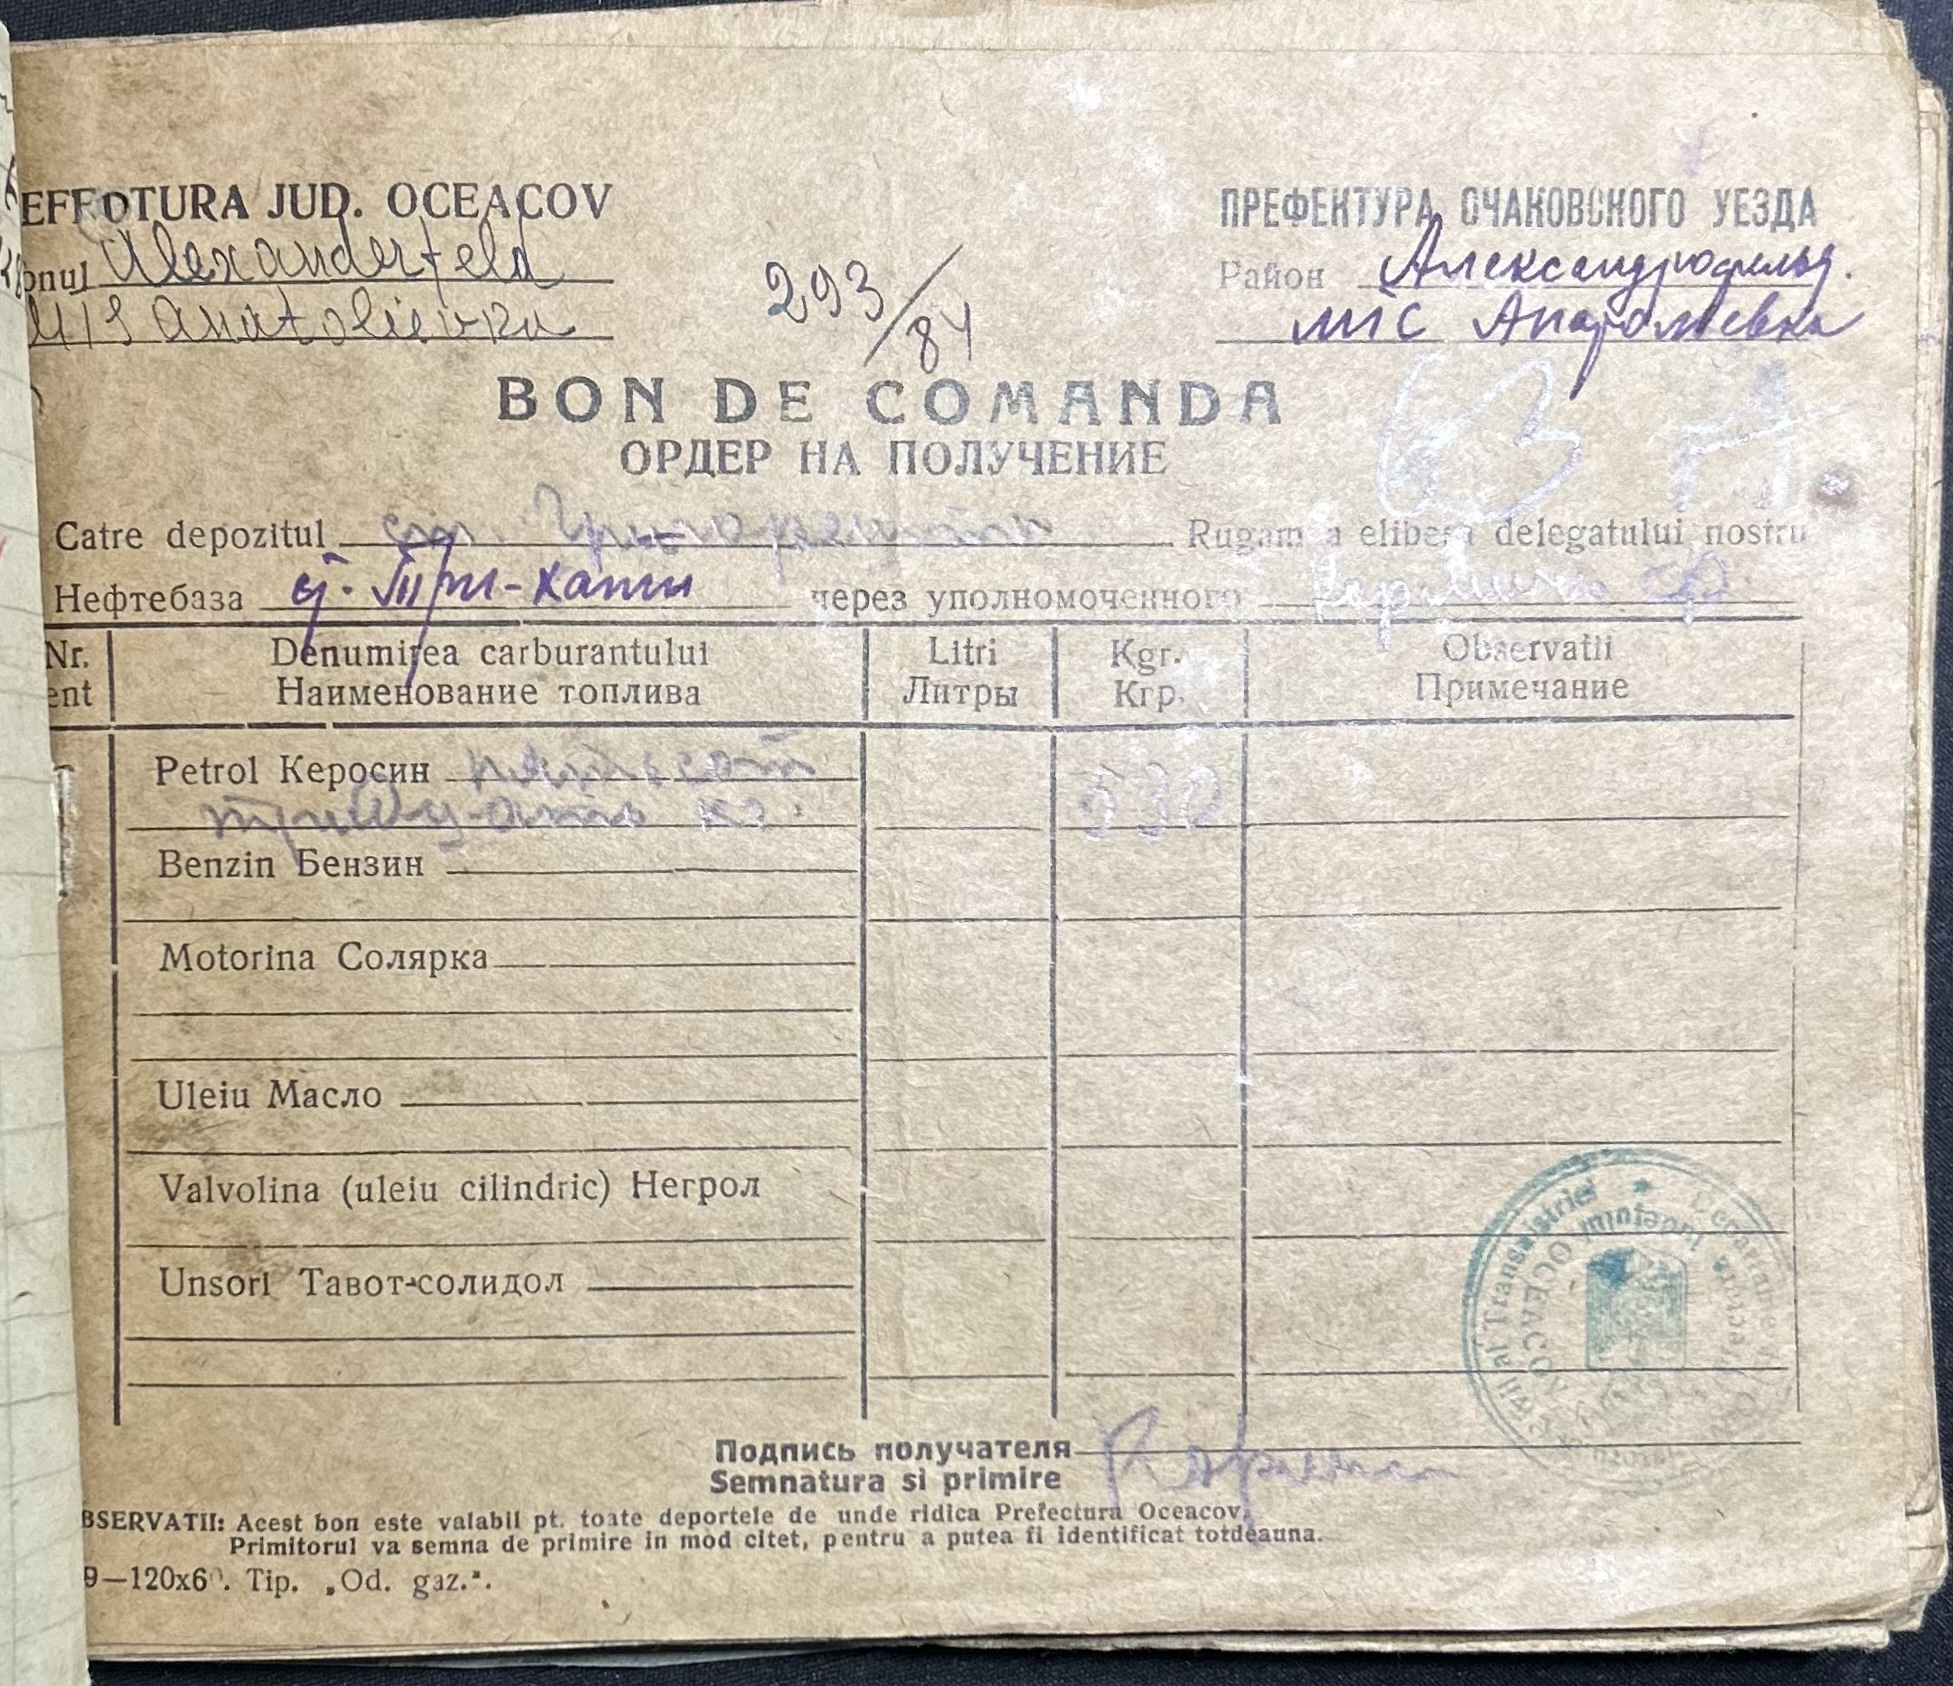 EFECTURA JUD. OCEACOV
ПРЕФЕКТУРА ОЧАКОВСКОГО УЕЗДА
onul Alexanderfeld
Район Александрофельд.
MTS Anatolievka
МТС Анатольевка
293/84
BON DE COMANDA
ОРДЕР НА ПОЛУЧЕНИЕ
63
Catre depozitul ст. Rugam a elibera delegatului nostru
Нефтебаза с. Три-Хаты через уполномоченного
Nr. Denumirea carburantului Litri Kgr. Observatii
ent Наименование топлива Литры Кгр. Примечание
Petrol Керосин пятьсот 530
тридцать кг.
Benzin Бензин
Motorina Солярка
Uleiu Масло
Valvolina (uleiu cilindric) Негрол
Unsori Тавот-солидол
al Transnistriei
Judeţului
OCEACOV
Подпись получателя
Semnatura si primire
BSERVATII: Acest bon este valabil pt. toate deportele de unde ridica Prefectura Oceacov.
Primitorul va semna de primire in mod citet, pentru a putea fi identificat totdeauna.
9—120x60. Tip. „Od. gaz.".